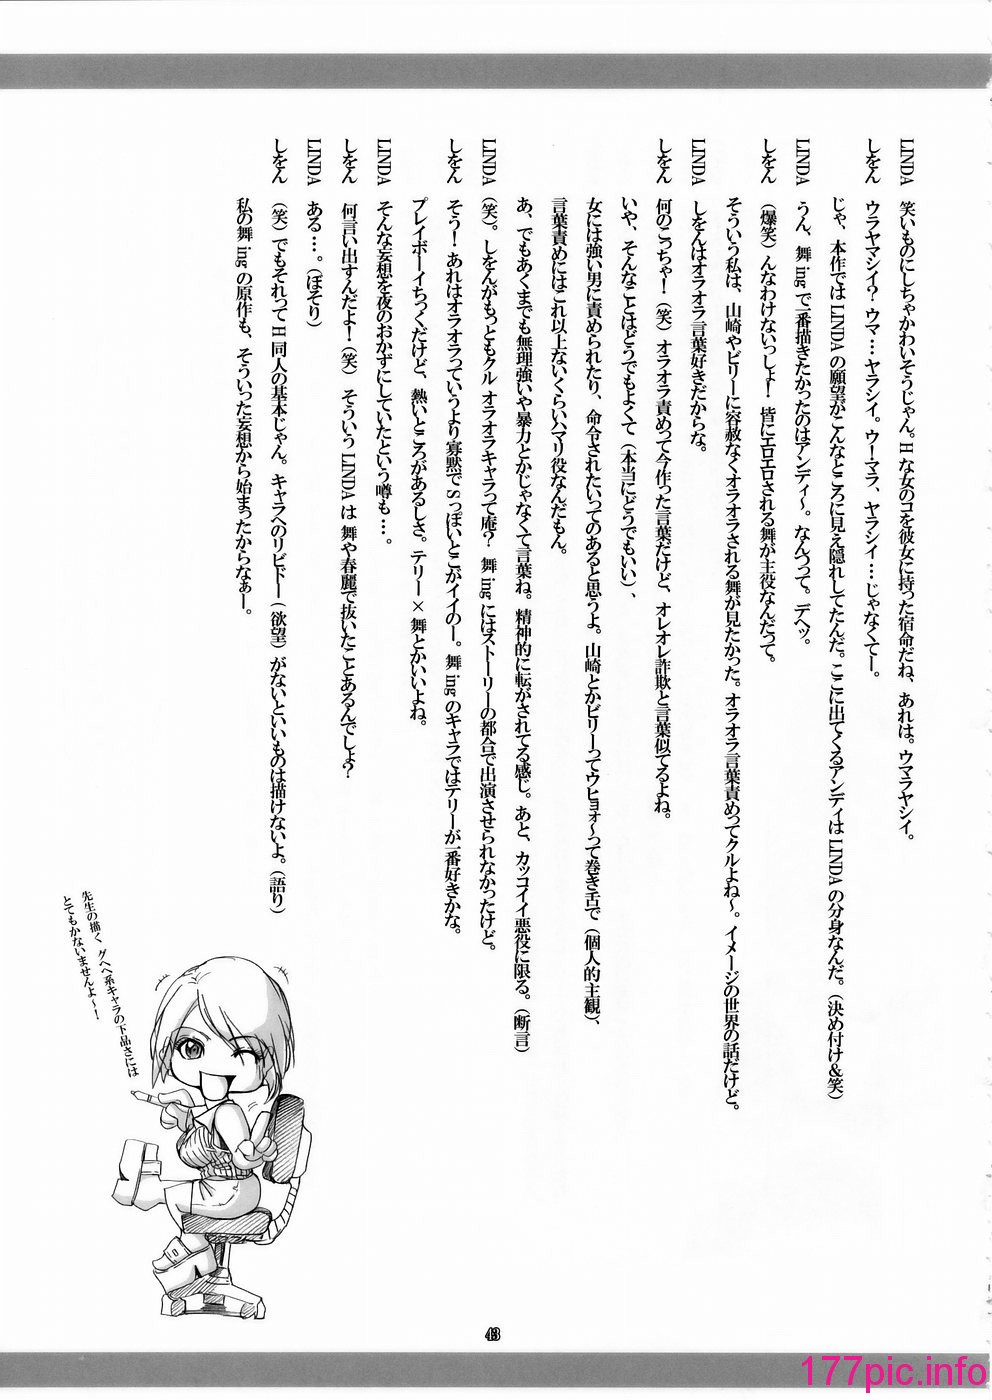 LINDA 笑いものにしちゃかわいそうじゃん。Hな女のコを彼女に持った宿命だね、あれは。ウマラヤシイ。
しをん ウラヤマシイ？ ウマ…ヤラシイ。ウ！マラ、ヤラシイ…じゃなくてー。
じゃ、本作ではLINDAの願望がこんなところに見え隠れしてたんだ。ここに出てくるアンディはLINDAの分身なんだ。（決め付け&笑）
LINDA うん、舞ingで一番描きたかったのはアンディ〜。なんつって。デヘッ。
しをん （爆笑）んなわけないっしょ！ 皆にエロエロされる舞が主役なんだって。
そういう私は、山崎やビリーに容赦なくオラオラされる舞が見たかった。オラオラ言葉責めってクルよね〜。イメージの世界の話だけど。
LINDA しをんはオラオラ言葉好きだからな。
しをん 何のこっちゃ！（笑）オラオラ責めって今作った言葉だけど、オレオレ詐欺と言葉似てるよね。
いや、そんなことはどうでもよくて（本当にどうでもいい）、
女には強い男に責められたり、命令されたいってのあると思うよ。山崎とかビリーってウヒョォ〜って巻き舌で（個人的主観）、
言葉責めにはこれ以上ないくらいハマリ役なんだもん。
あ、でもあくまでも無理強いや暴力とかじゃなくて言葉ね。精神的に転がされてる感じ。あと、カッコイイ悪役に限る。（断言）
LINDA （笑）。しをんがもっともクルオラオラキャラって庵？ 舞ingにはストーリーの都合で出演させられなかったけど。
しをん そう！ あれはオラオラっていうより寡黙でSっぽいとこがイイのー。舞ingのキャラではテリーが一番好きかな。
プレイボーイちっくだけど、熱いところがあるしさ。テリー×舞とかいいよね。
LINDA そんな妄想を夜のおかずにしていたという噂も…。
しをん 何言い出すんだよ！（笑）そういうLINDAは舞や春麗で抜いたことあるんでしょ？
LINDA ある…。（ぼそり）
しをん （笑）でもそれってH同人の基本じゃん。キャラへのリビドー（欲望）がないといいものは描けないよ。（語り）
私の舞ingの原作も、そういった妄想から始まったからなぁー。
先生の描く、グヘヘ系キャラの下品さには
とてもかないませんよ〜！
43
177pic.info